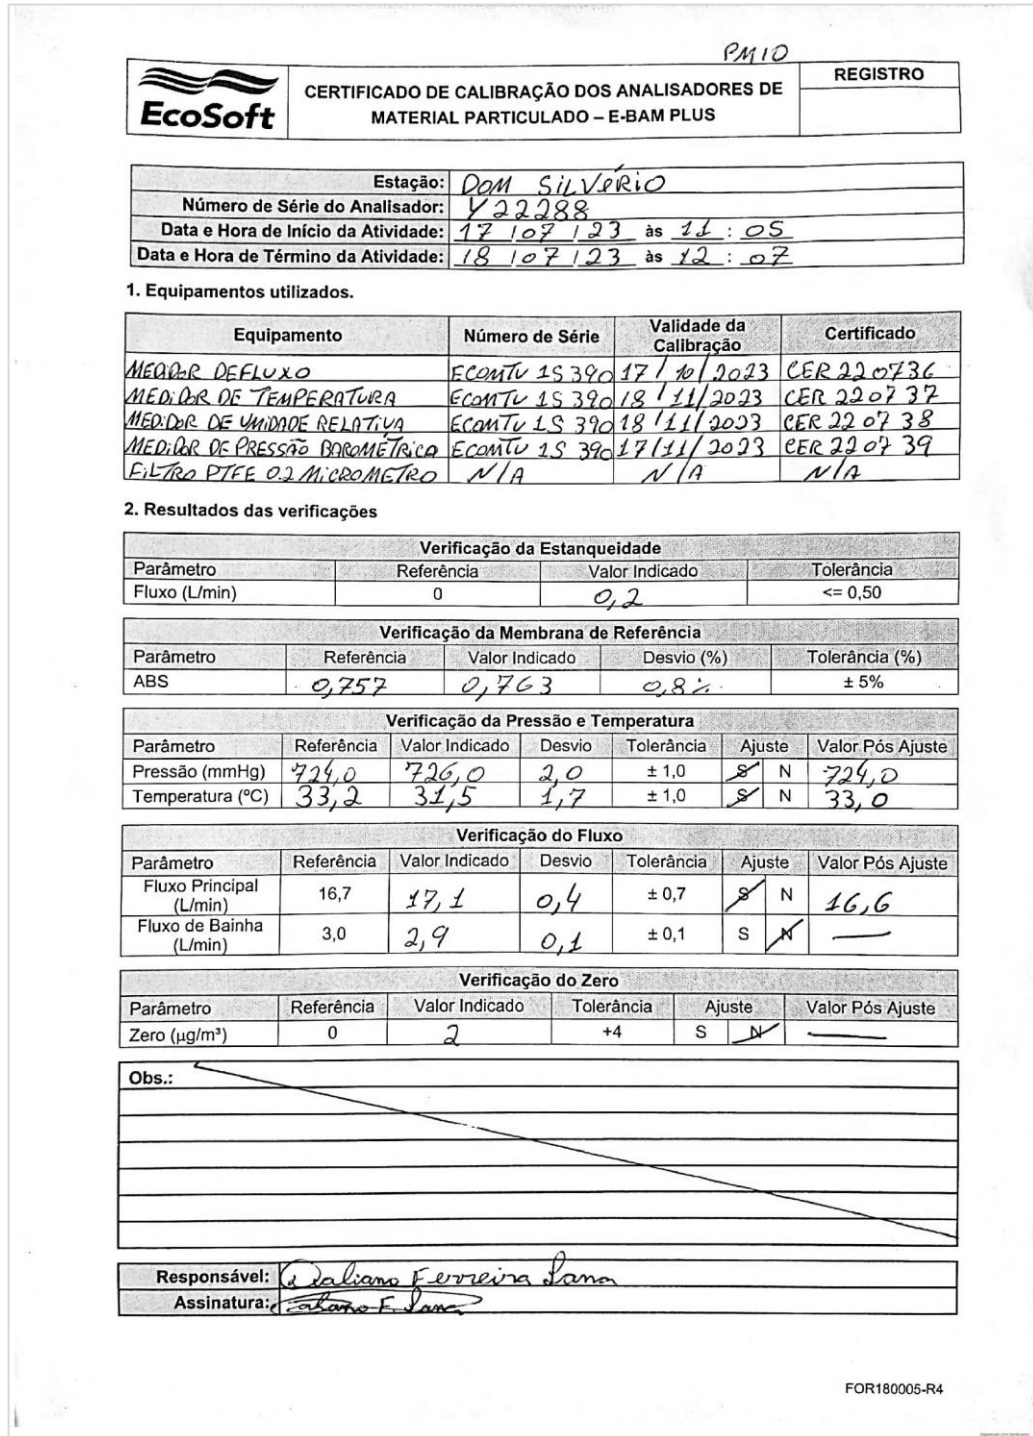 PM10
EcoSoft
CERTIFICADO DE CALIBRAÇÃO DOS ANALISADORES DE
MATERIAL PARTICULADO – E-BAM PLUS
REGISTRO
Estação: DOM SILVÉRIO
Número de Série do Analisador: Y22288
Data e Hora de Início da Atividade: 17 / 07 / 23 às 11 : 05
Data e Hora de Término da Atividade: 18 / 07 / 23 às 12 : 07
1. Equipamentos utilizados.
Equipamento Número de Série Validade da Calibração Certificado
MEDIDOR DE FLUXO ECOMTV 1S 390 17/10/2023 CER 220736
MEDIDOR DE TEMPERATURA ECOMTV 1S 390 18/11/2023 CER 220737
MEDIDOR DE UMIDADE RELATIVA ECOMTV 1S 390 18/11/2023 CER 220738
MEDIDOR DE PRESSÃO BAROMÉTRICA ECOMTV 1S 390 17/11/2023 CER 220739
FILTRO PTFE 0.2 MICROMETRO N/A N/A N/A
2. Resultados das verificações
Verificação da Estanqueidade
Parâmetro Referência Valor Indicado Tolerância
Fluxo (L/min) 0 0,2 <= 0,50
Verificação da Membrana de Referência
Parâmetro Referência Valor Indicado Desvio (%) Tolerância (%)
ABS 0,757 0,763 0,8% ± 5%
Verificação da Pressão e Temperatura
Parâmetro Referência Valor Indicado Desvio Tolerância Ajuste Valor Pós Ajuste
Pressão (mmHg) 724,0 726,0 2,0 ± 1,0 S N 724,0
Temperatura (ºC) 33,2 31,5 1,7 ± 1,0 S N 33,0
Verificação do Fluxo
Parâmetro Referência Valor Indicado Desvio Tolerância Ajuste Valor Pós Ajuste
Fluxo Principal (L/min) 16,7 17,1 0,4 ± 0,7 S N 16,6
Fluxo de Bainha (L/min) 3,0 2,9 0,1 ± 0,1 S N —
Verificação do Zero
Parâmetro Referência Valor Indicado Tolerância Ajuste Valor Pós Ajuste
Zero (µg/m³) 0 2 +4 S N —
Obs.:
Responsável: Ferreira Lana
Assinatura:
FOR180005-R4